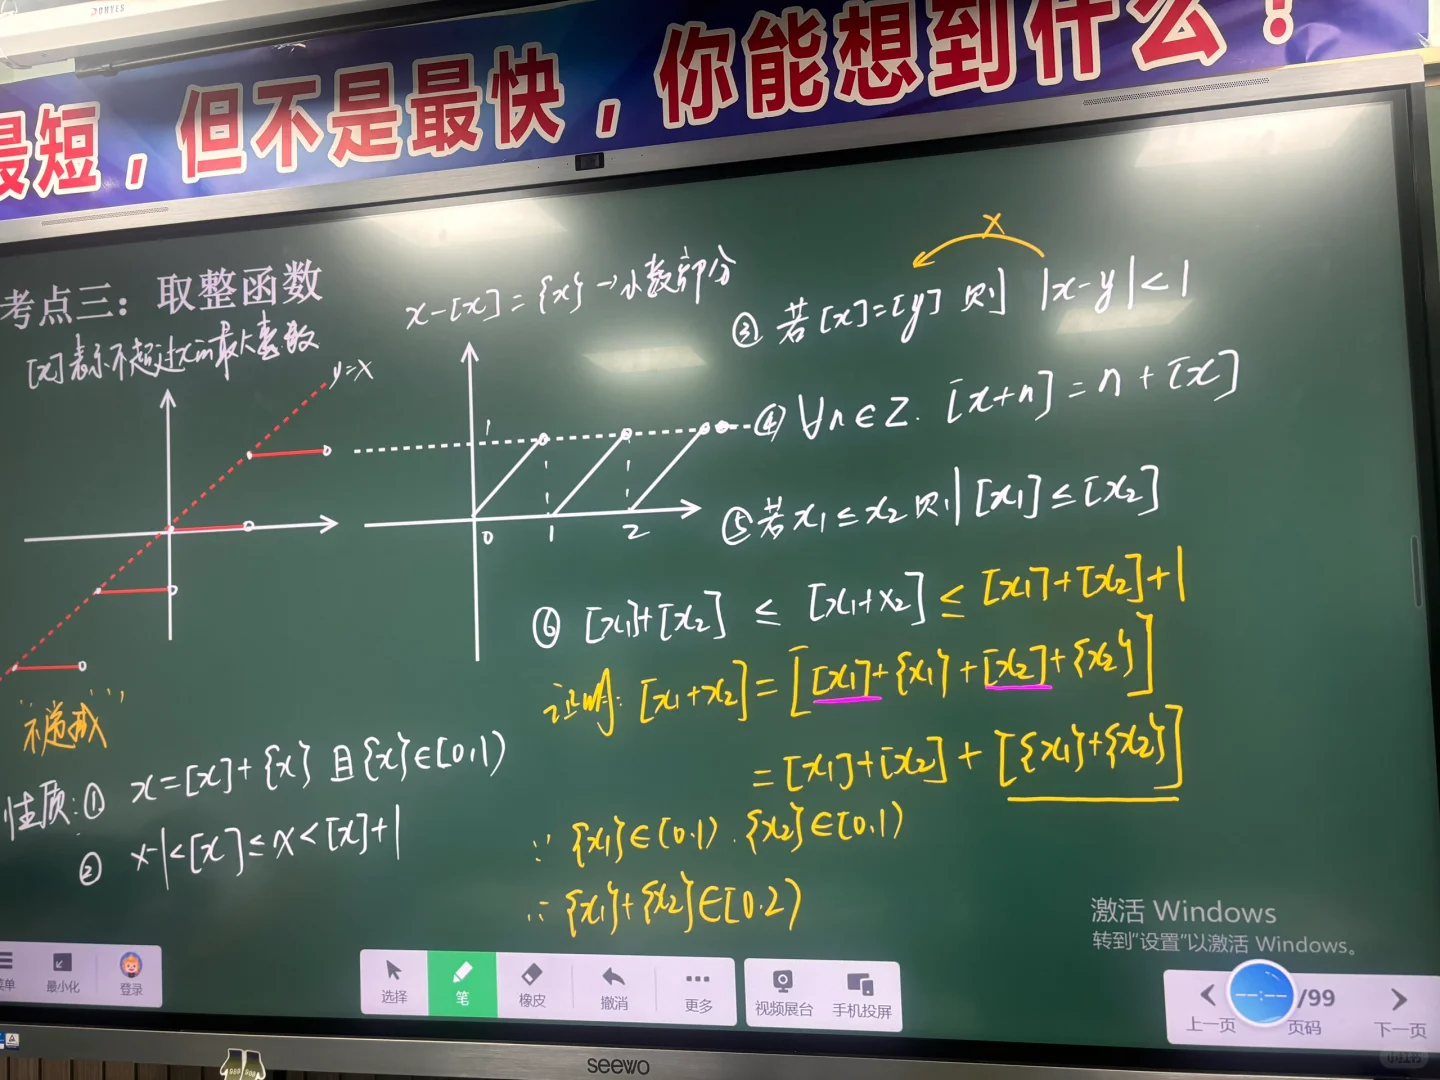 最短，但不是最快，你能想到什么！
考点三：取整函数
[x]表示不超过x的最大整数
y=x
x-[x]={x}→小数部分
1
0 1 2
"不递减"
性质：① x=[x]+{x} 且{x}∈[0,1)
② x-1<[x]≤x<[x]+1
x
③ 若[x]=[y] 则 |x-y|<1
④ ∀n∈Z. [x+n]=n+[x]
⑤ 若x₁≤x₂则 [x₁]≤[x₂]
⑥ [x₁]+[x₂] ≤ [x₁+x₂] ≤ [x₁]+[x₂]+1
证明：[x₁+x₂]=[[x₁]+{x₁}+[x₂]+{x₂}]
=[x₁]+[x₂]+[{x₁}+{x₂}]
∵ {x₁}∈[0.1). {x₂}∈[0.1)
∴ {x₁}+{x₂}∈[0.2)
激活 Windows
转到"设置"以激活 Windows。
菜单 最小化 登录
选择 笔 橡皮 撤消 更多
视频展台 手机投屏
上一页 --:-- /99 页码 下一页
seewo